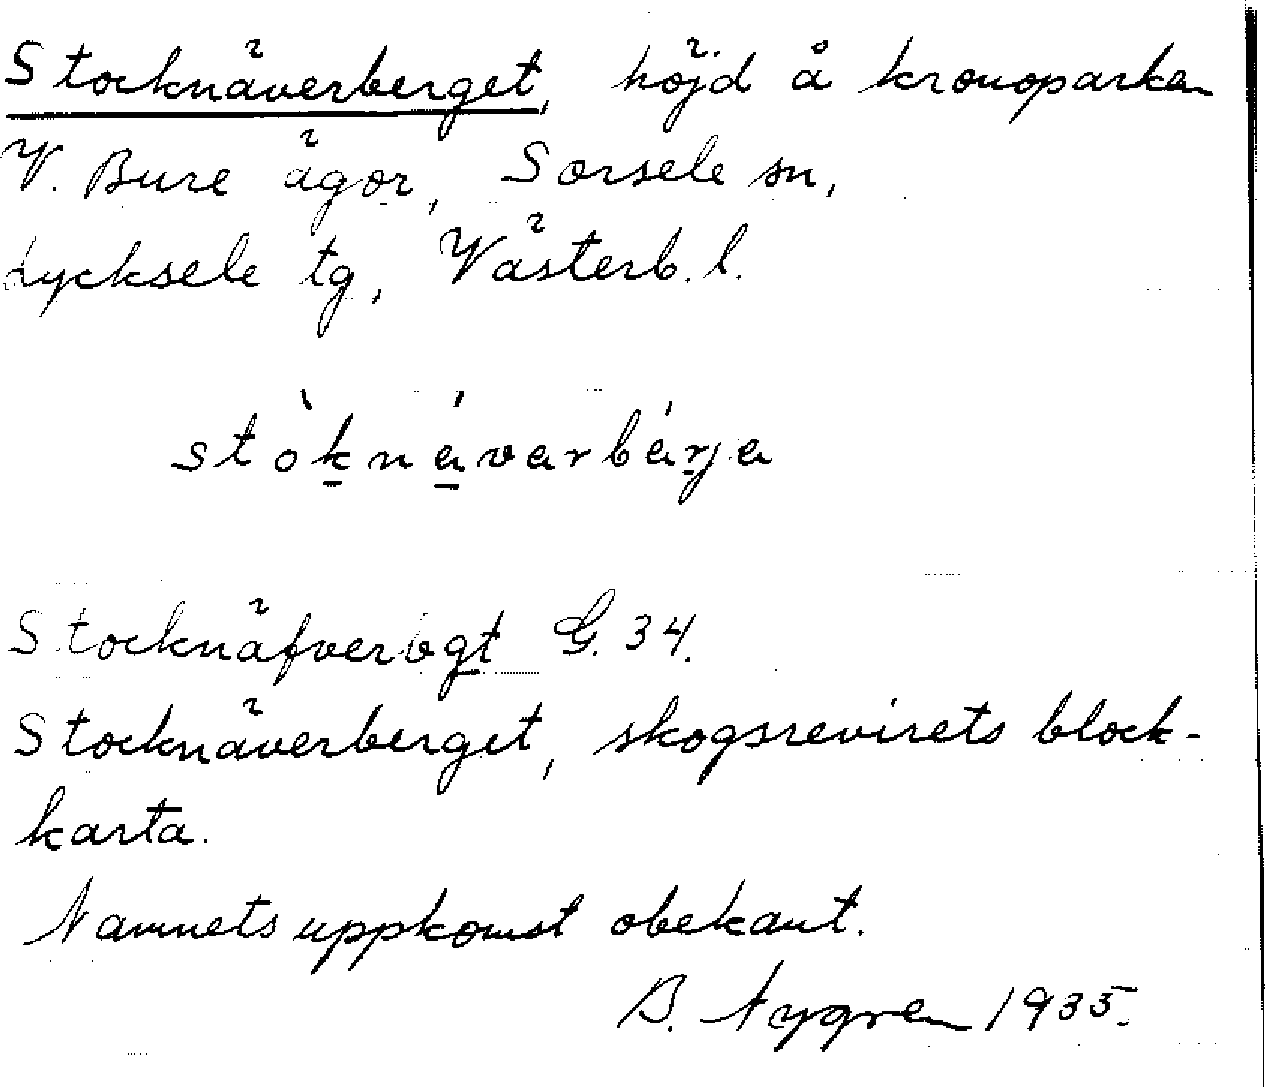 Stocknäverberget, höjd å kronoparken
V. Bure ägor, Sorsele sn,
Lycksele tg, Västerb. l.
stòknávarbárja
Stocknäfverbgt G. 34.
Stocknäverberget, skogsrevirets block-
karta.
Namnets uppkomst obekant.
B. Nygren 1935.